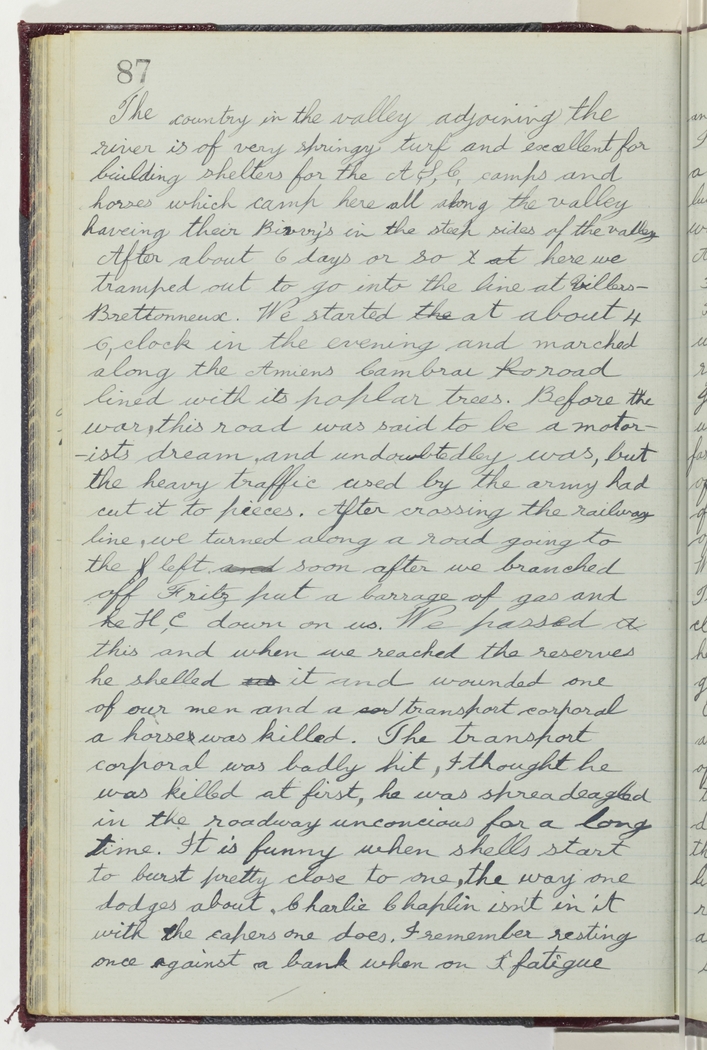 87
The country in the valley adjoining the
river is of very springy turf and excellent for
building shelters for the A.S.C, camps and
horses which camp here all along the valley
haveing their Bivvy's in the steep sides of the valley
After about 6 days or so at here we
tramped out to go into the line at Villers-
Brettonneux. We started the at about 4
O,clock in the evening and marched
along the Amiens Cambrai Ro road
lined with its poplar trees. Before the
war, this road was said to be a motor-
-ists dream, and undoubtedley was, but
the heavy traffic used by the army had
cut it to pieces. After crossing the railway
line, we turned along a road going to
the left and soon after we branched
off Fritz put a barrage of gas and
he H,E down on us. We passed
this and when we reached the reserves
he shelled us it and wounded one
of our men and a transport corporal
a horse was killed. The transport
corporal was badly hit, I thought he
was killed at first, he was spreadeagled
in the roadway unconcious for a long
time. It is funny when shells start
to burst pretty close to one, the way one
dodges about. Charlie Chaplin isn't in it
with the capers one does. I remember resting
once against a bank when on fatigue